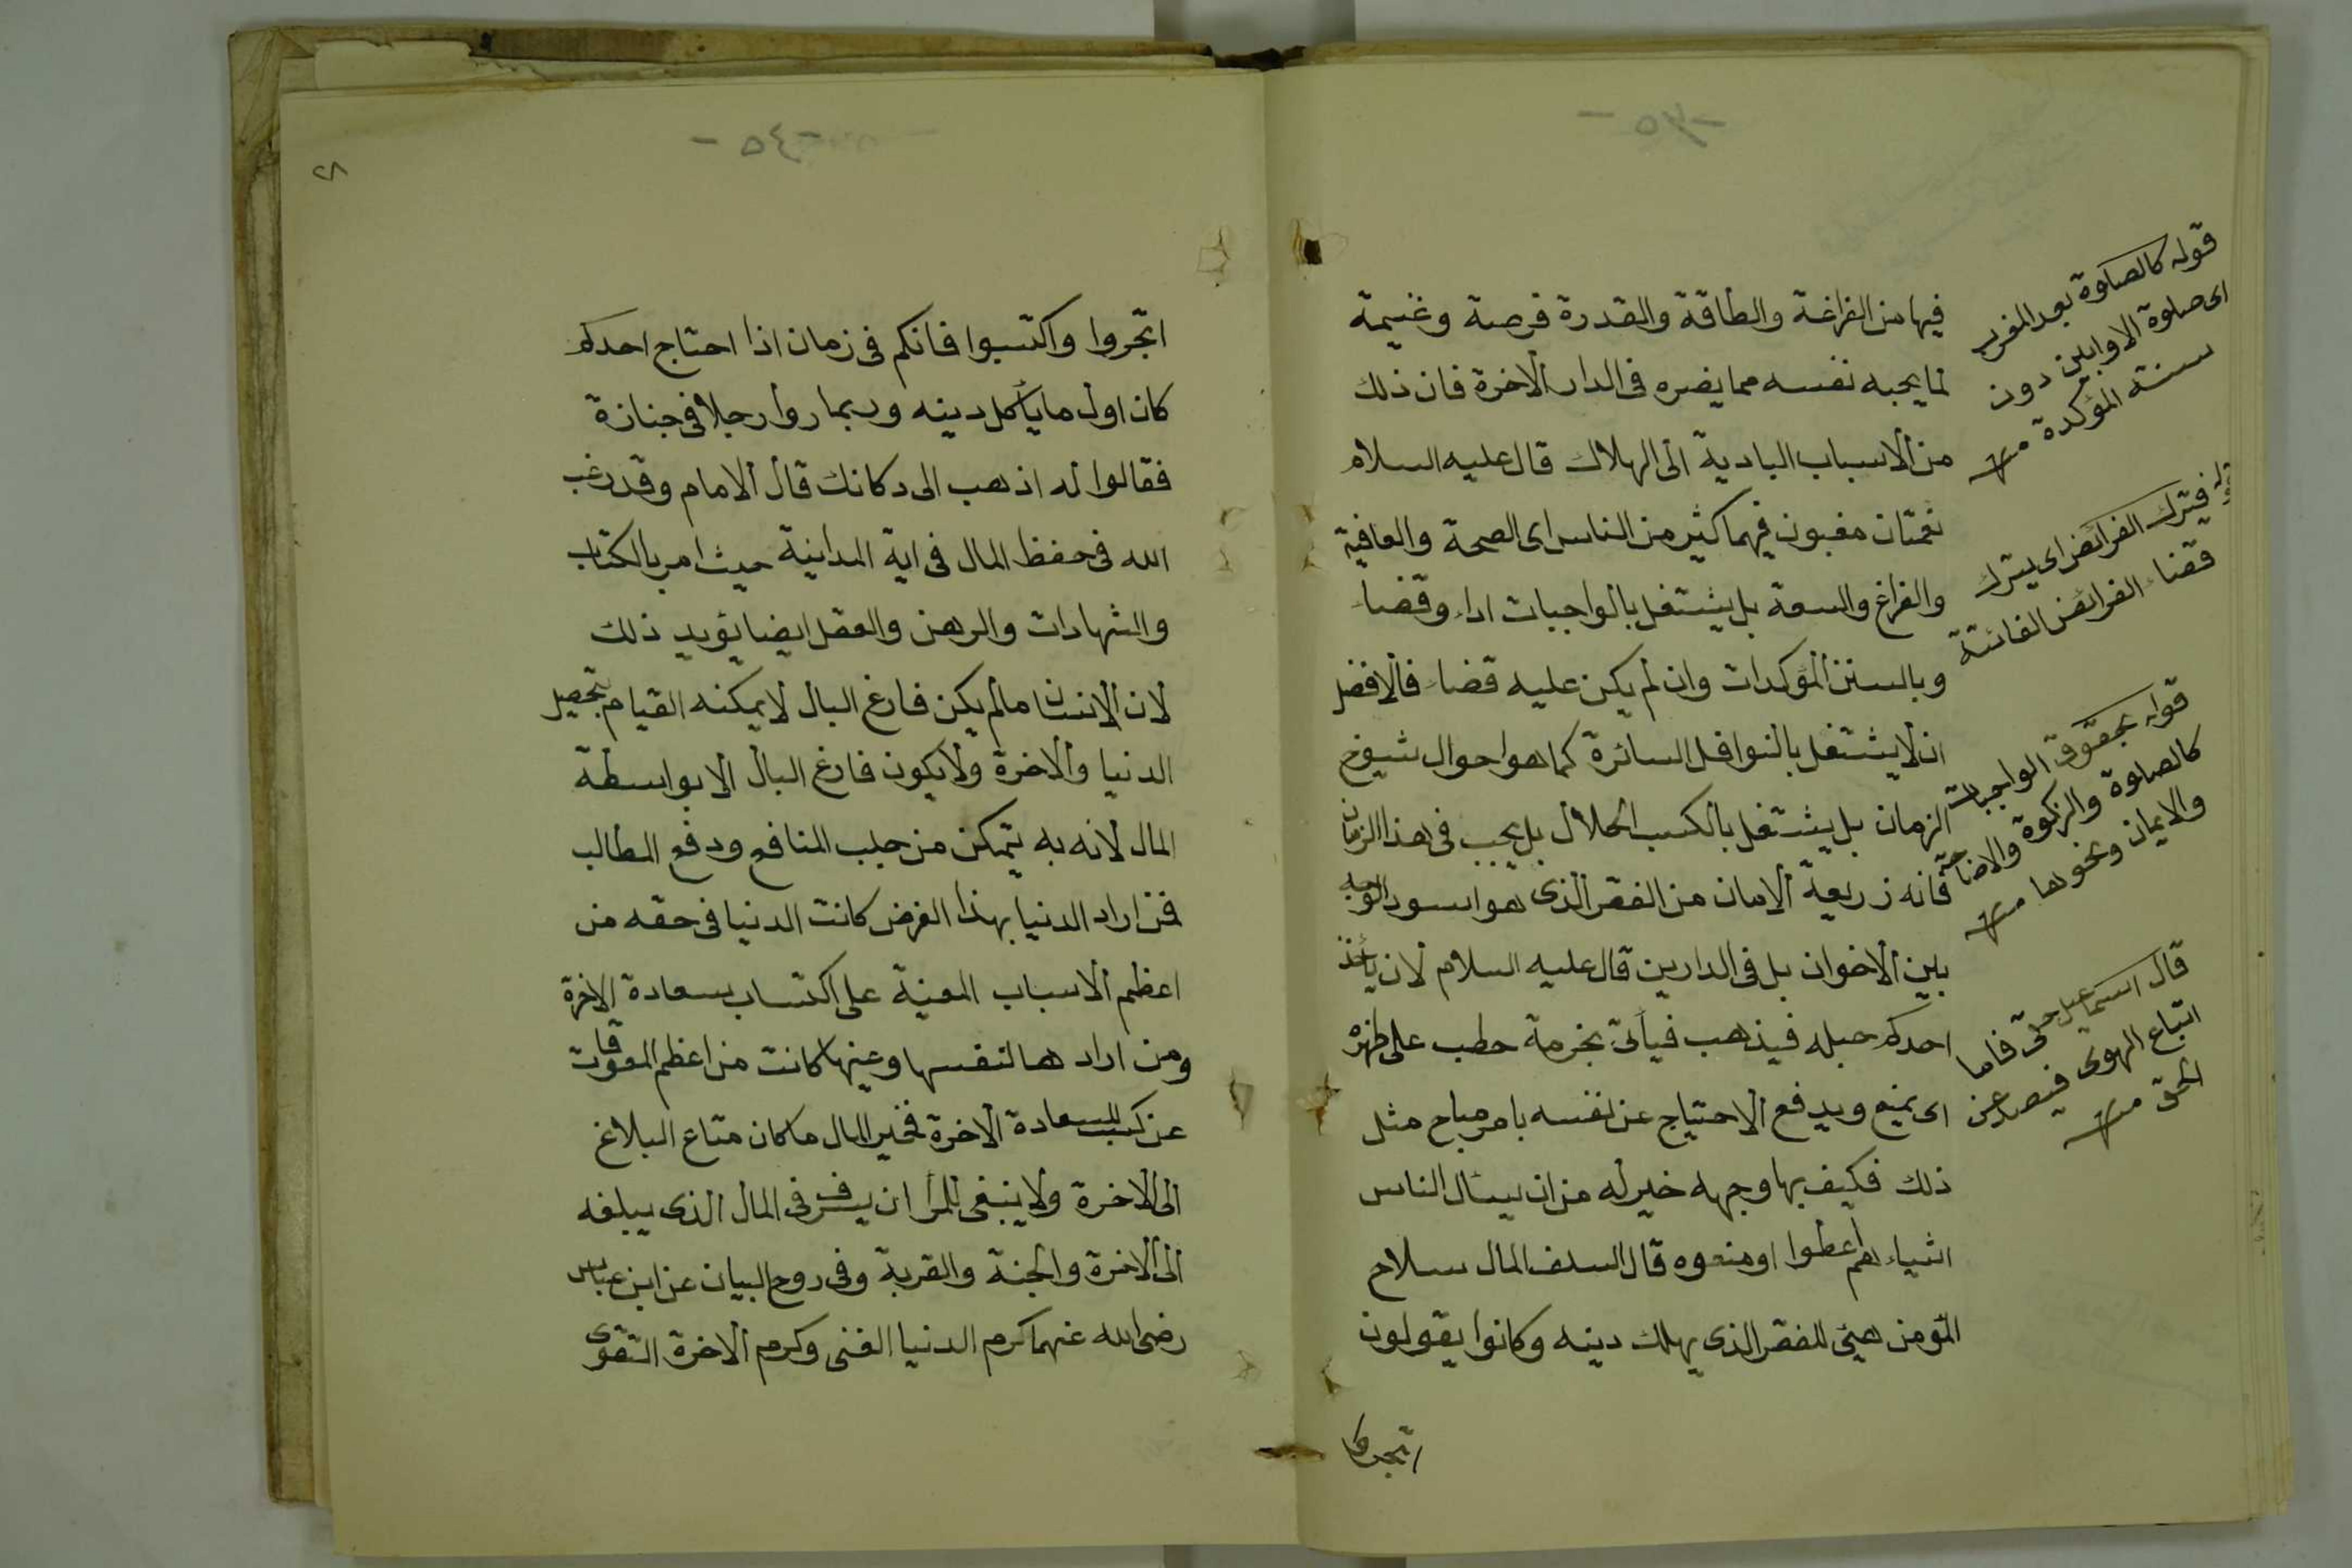 فيها من الفراغة والطاقة والقدرة فرصة وغنيمة
لما يحبه نفسه مما يضره فى الدار الاخرة فان ذلك
من الاسباب البادية الى الهلاك قال عليه السلام
نعمتان مغبون فيهما كثير من الناس اى الصحة والعافية
والفراغ والسعة بل يشتغل بالواجبات اداء وقضاء
وبالسنن المؤكدات وان لم يكن عليه قضاء فالافضل
ان لا يشتغل بالنوافل السائرة كما هو احوال شيوخ
الزمان بل يشتغل بالكسب الحلال بل يجب فى هذا الزمان
فانه زريعة الامان من الفقر الذى هو اسود الوجه
بين الاخوان بل فى الدارين قال عليه السلام لان يأخذ
احدكم حبله فيذهب فيأتى بخرمة حطب على ظهره
اى يمنع ويدفع الاحتياج عن نفسه بامر مباح مثل
ذلك فكيف بها وجهه خير له من ان يسئال الناس
اشياء هم اعطوا او منعوه قال السلف المال سلاح
المؤمن هيئ للفقر الذى يهلك دينه وكانوا يقولون
اتجروا
قوله كالصلوة بعد المغرب
اى صلوة الاوابين دون
سنة المؤكدة منه
قوله فيترك الفرائض اى يترك
قضاء الفرائض الفائتة
قوله بحقوق الواجبات
كالصلوة والزكوة والاضاحية
والايمان ونحوها منه
قال اسماعيل حقى فاما
اتباع الهوى فيصد عن
الحق منه
٢٨
-٤٥-
اتجروا واكتسبوا فانكم فى زمان اذا احتاج احدكم
كان اول ما يأكل دينه وربما روا رجلا فى جنازة
فقالوا له اذهب الى دكانك قال الامام وقد رغب
الله فى حفظ المال فى اية المداينة حيث امر بالكتاب
والشهادات والرهن والعقل ايضا يؤيد ذلك
لان الانسان مالم يكن فارغ البال لا يمكنه القيام بتحصيل
الدنيا والاخرة ولا يكون فارغ البال الا بواسطة
المال لانه به يتمكن من جلب المنافع ودفع المطالب
فمن اراد الدنيا بهذا الغرض كانت الدنيا فى حقه من
اعظم الاسباب المعينة على اكتساب سعادة الاخرة
ومن اراد هما لنفسها وعينها كانت من اعظم المعوقات
عن كسب السعادة الاخرة فخير المال ما كان متاع البلاغ
الى الاخرة ولا ينبغى للمرأ ان يسرف فى المال الذى يبلغه
الى الاخرة والجنة والقربة وفى روح البيان عن ابن عباس
رضى الله عنهما كرم الدنيا الغنى وكرم الاخرة التقوى